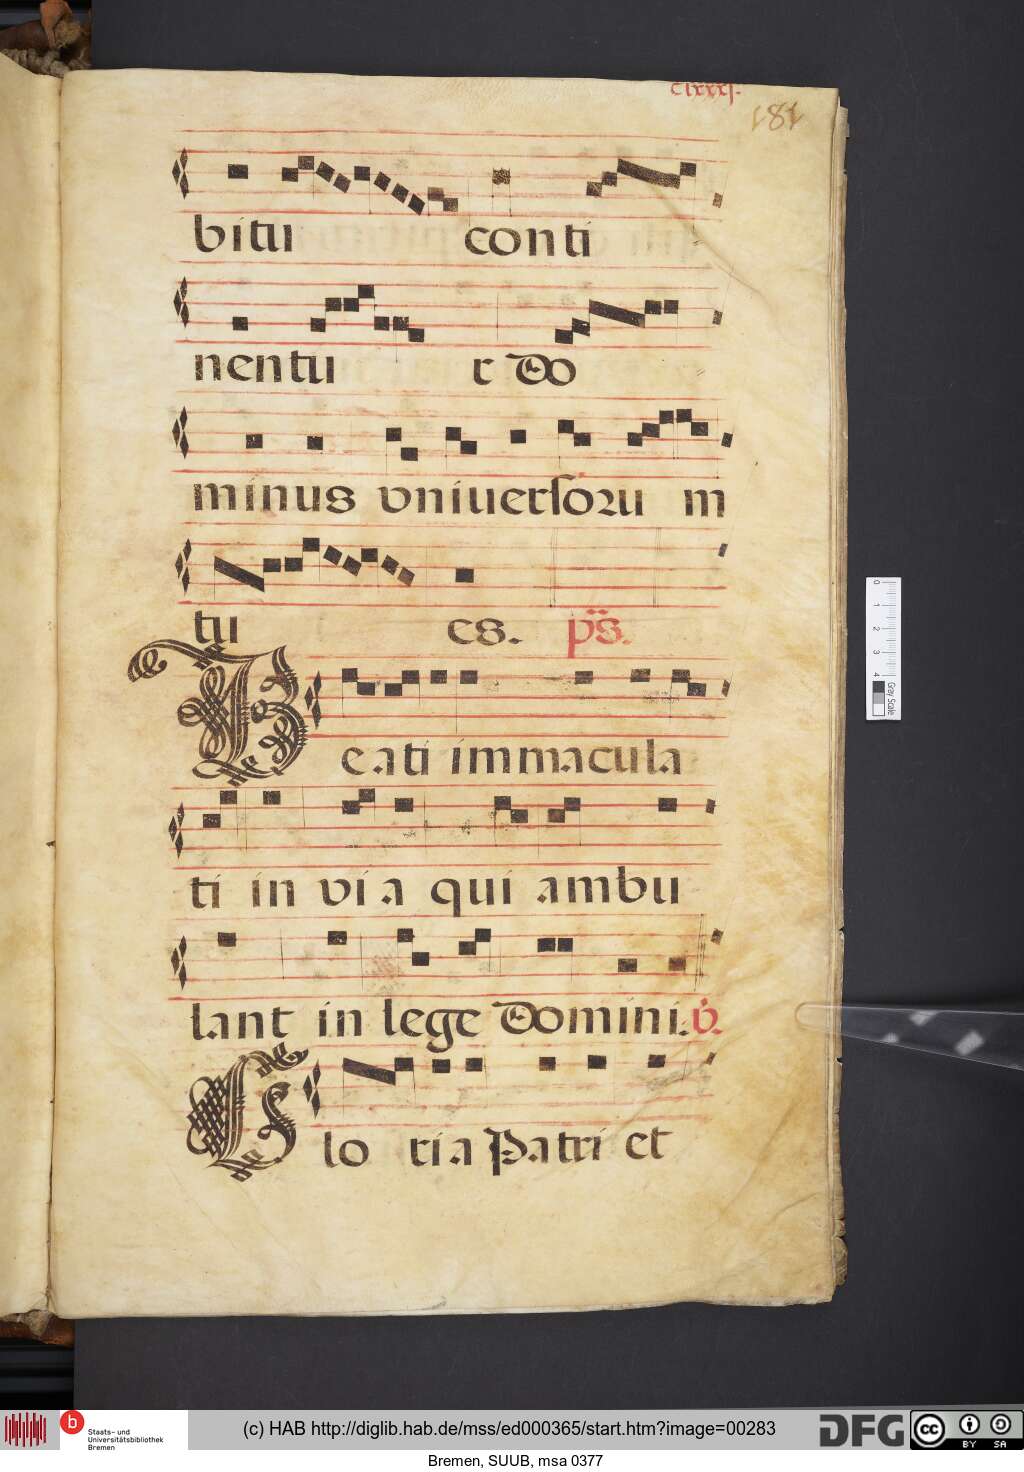 clxxxj.
181
bitu conti
nentu r Do
minus vniuersoru m
tu es. ps.
Beati immacula
ti in via qui ambu
lant in lege Domini. V.
Glo ria Patri et
0 1 2 3 4
Gray Scale
b Staats- und
Universitätsbibliothek
Bremen
(c) HAB http://diglib.hab.de/mss/ed000365/start.htm?image=00283
DFG cc BY SA
Bremen, SUUB, msa 0377